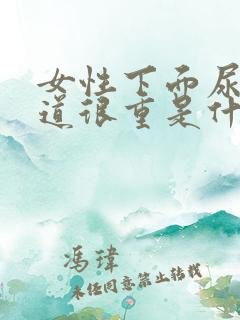 女性下面尿
道很重是什
冯玮
未经同意禁止转载